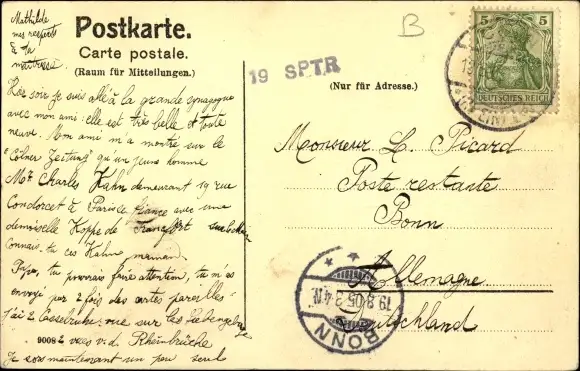 Mathilde
mes respects
à ta
maîtresse
Postkarte.
Carte postale.
(Raum für Mitteilungen.)
19 SPTR
B
(Nur für Adresse.)
5 5
DEUTSCHES REICH
soir je suis allé à la grande synagogue
avec mon ami: elle est très belle et toute
neuve. Mon ami m'a montré sur le
"Cölner Zeitung" qu'un jeune homme
Mr Charles Kahn demeurant 19 rue
Condorcet à Paris fiancé avec une
demoiselle Hoppe de Francfort
Connais-tu ces Kahn maman
Papa, tu pourrais faire attention, tu m'as
envoyé par 2 fois des cartes pareilles
J'ai 2 vue sur
9008 2 vues v.d. Rheinbrücke
Je suis maintenant un peu seul
Monsieur L. Picard
Poste restante
Bonn
Allemagne
Deutschland
BONN
19.8.05.3-4N.